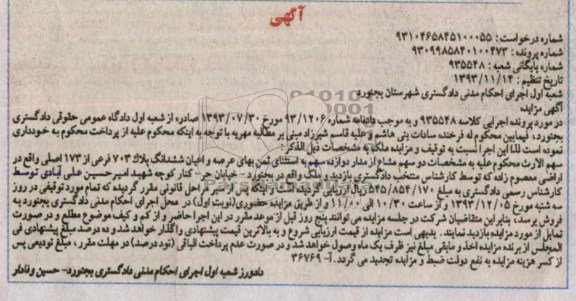 آگهی
شماره درخواست: ۹۳۱۰۴۶۵۸۴۵۱۰۰۰۵۵
شماره پرونده: ۹۳۰۹۹۸۵۸۴۰۱۰۰۴۷۳
شماره بایگانی شعبه: ۹۳۵۵۴۸
تاریخ تنظیم: ۱۳۹۳/۱۱/۱۴
شعبه اول اجرای احکام مدنی دادگستری شهرستان بجنورد
آگهی مزایده
در مورد پرونده اجرایی کلاسه ۹۳۵۵۴۸ و به موجب دادنامه شماره ۹۳/۱۲۰۶ مورخ ۱۳۹۳/۰۷/۳۰ صادره از شعبه اول دادگاه عمومی حقوقی دادگستری
بجنورد، فیمابین محکوم له فرخنده سادات بنی هاشم و علیه قاسم شیرزاد مبنی بر مطالبه مهریه با توجه به اینکه محکوم علیه از پرداخت محکوم به خودداری
نموده است لذا این اجرا نسبت به توقیف و مزایده ملک به مشخصات ذیل الذکر:
سهم الارث محکوم علیه به مشخصات دو سهم مشاع از مدار دوازده سهم به استثنای ثمن بهای عرصه و اعیان ششدانگ پلاک ۷۰۳ فرعی از ۱۷۳ اصلی واقع در
اراضی معصوم زاده که توسط کارشناس منتخب دادگستری بازدید و ملک واقع در بجنورد - خیابان حر - کنار کوچه شهید امیرحسین علی آبادی توسط
کارشناس رسمی دادگستری به مبلغ ۵۴۵/۸۵۴/۱۷۰ ریال ارزیابی گردیده است و اینکه پس از سیر مراحل قانونی مقرر گردیده که تمام مورد توقیفی در روز
سه شنبه مورخ ۱۳۹۳/۱۲/۰۵ و از ساعت ۱۰/۳۰ الی ۱۱/۰۰ و از طریق مزایده حضوری (نوبت اول) در محل اجرای احکام مدنی دادگستری بجنورد به
فروش برسد، بنابراین متقاضیان شرکت در جلسه مزایده می توانند پنج روز قبل از موعد مقرر در این اجرا حاضر و از کم و کیف موضوع مطلع و در صورت
تمایل از مورد مزایده بازدید نمایند. بدیهی است مزایده از قیمت ارزیابی شروع و به بالاترین قیمت پیشنهادی واگذار خواهد شد و ده درصد مبلغ پیشنهادی فی
المجلس از برنده مزایده اخذ و مابقی مبلغ نیز ظرف یک ماه وصول خواهد شد و در صورت عدم پرداخت الباقی (نود درصد) در مهلت مقرر، مبلغ تودیعی پس
از کسر هزینه مزایده به نفع دولت ضبط و مزایده تجدید می گردد. آ- ۳۶۷۶۹
دادورز شعبه اول اجرای احکام مدنی دادگستری بجنورد - حسین وفادار